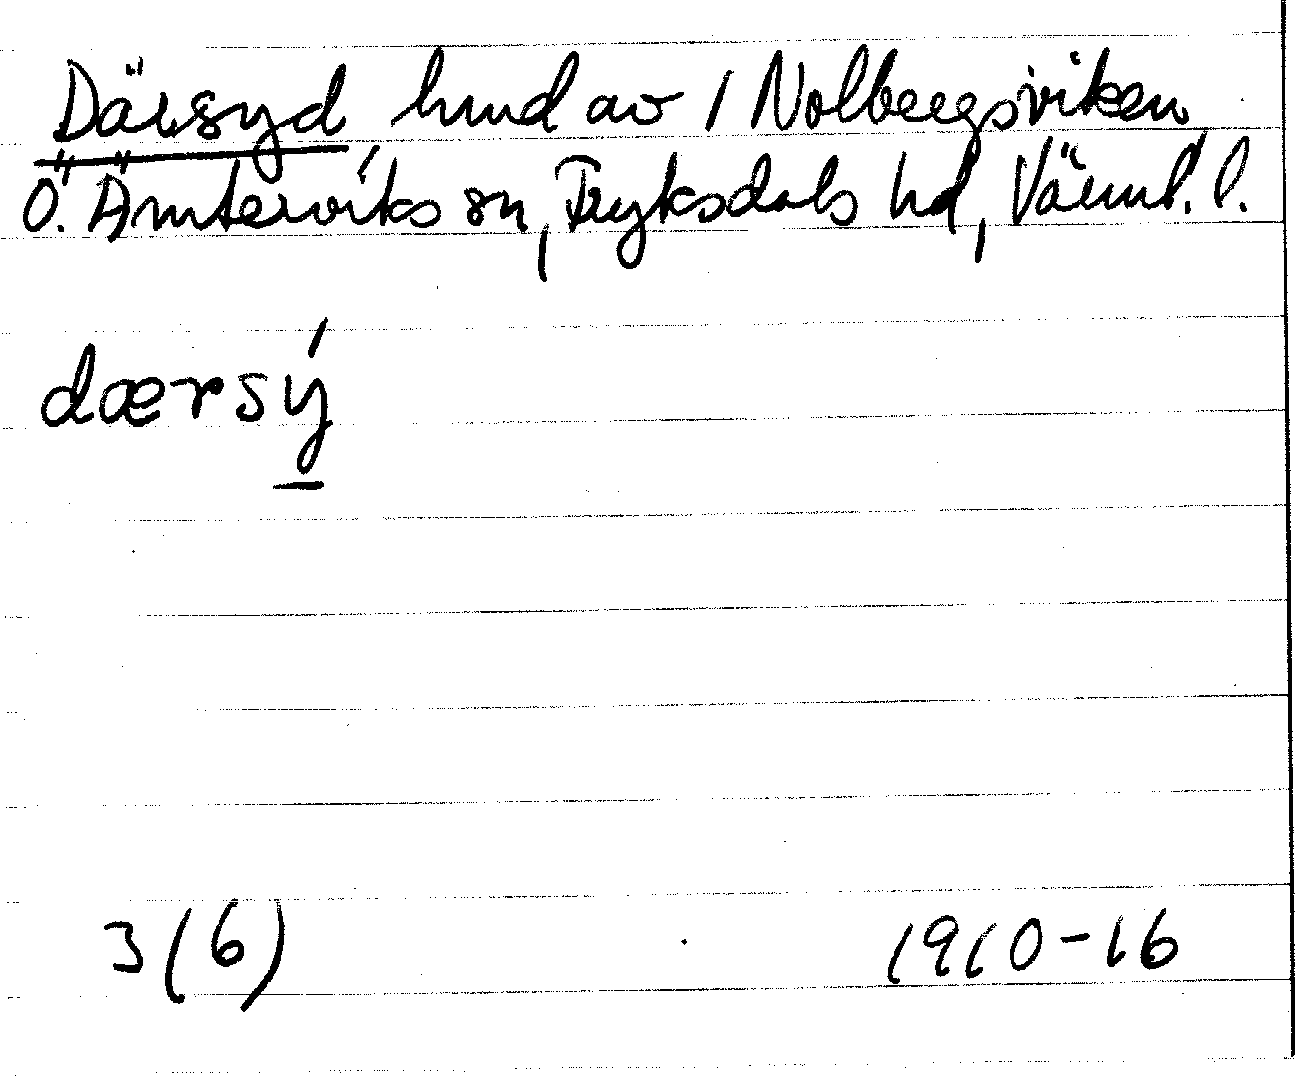 Därsyd hmd av 1 Nolbergsviken
Ö. Ämterviks sn, Fryksdals hd, Värml. l.
dærsý
3 (6)
1910-16